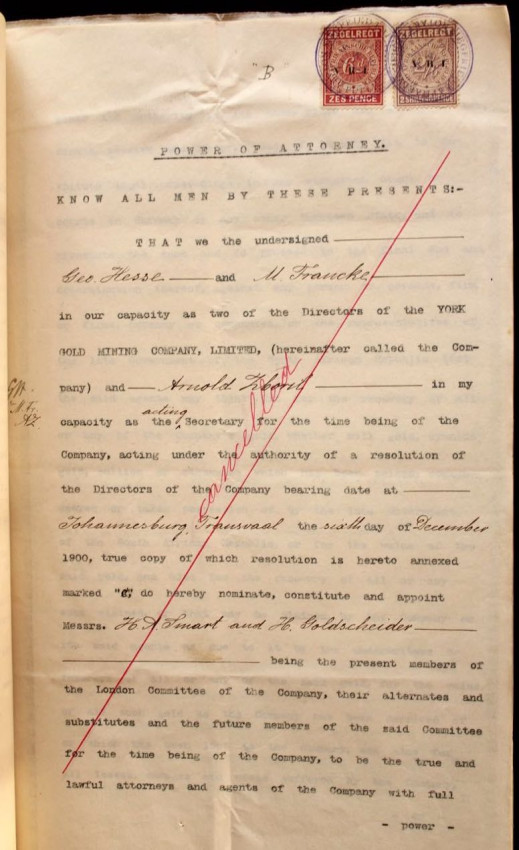 "B
ZEGELREGT ZEGELREGT
V.R.I. V.R.I.
ZES PENCE
POWER OF ATTORNEY.
KNOW ALL MEN BY THESE PRESENTS:-
THAT we the undersigned
Geo. Hesse and M. Francke
in our capacity as two of the Directors of the YORK
GOLD MINING COMPANY, LIMITED, (hereinafter called the Com-
pany) and Arnold in my
acting
capacity as the Secretary for the time being of the
Company, acting under the authority of a resolution of
the Directors of the Company bearing date at
Johannesburg, Transvaal the sixth day of December
1900, true copy of which resolution is hereto annexed
marked "C, do hereby nominate, constitute and appoint
Messrs. H A Smart and H. Goldscheider
being the present members of
the London Committee of the Company, their alternates and
substitutes and the future members of the said Committee
for the time being of the Company, to be the true and
lawful attorneys and agents of the Company with full
- power -
cancelled